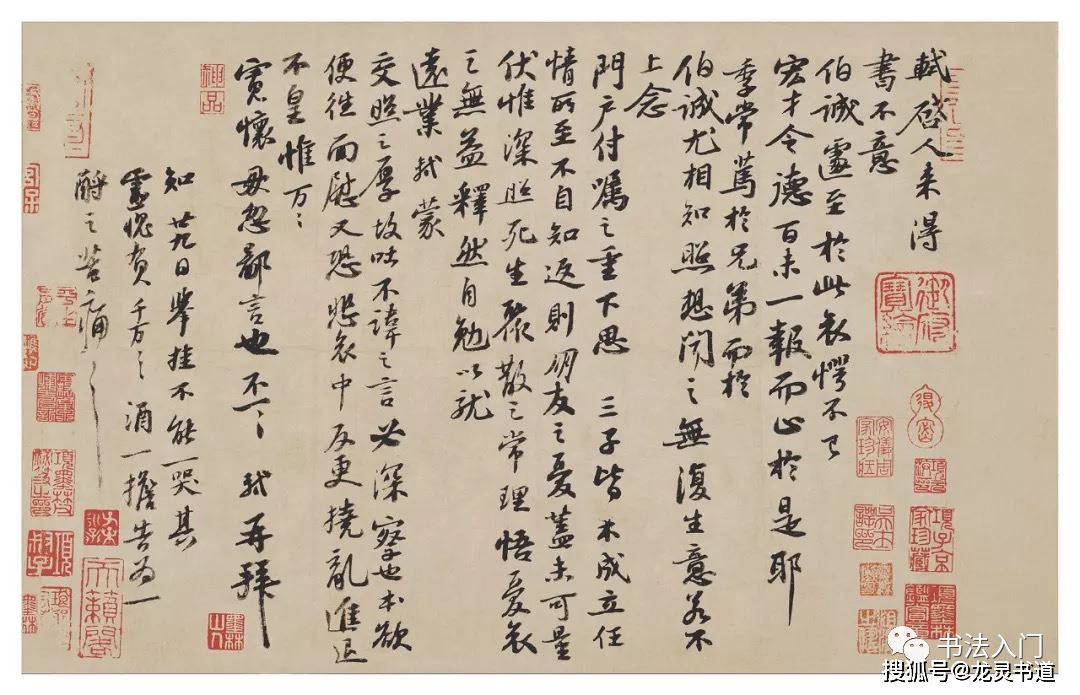 軾啓人来得
書不意
伯誠遽至於此哀愕不已
宏才令德百未一報而止於是耶
季常篤於兄弟而於
伯誠尤相知照想聞之無復生意若不
上念
門户付嘱之重下思三子皆未成立任
情所至不自知返則朋友之憂蓋未可量
伏惟深照死生聚散之常理悟憂哀
之無益釋然自勉以就
遠業軾蒙
交照之厚故吐不諱之言必深察也本欲
便往面慰又恐悲哀中反更撓亂進退
不皇惟万〻
寬懷毋忽鄙言也不一〻軾再拜
知廿九日舉挂不能一哭其
靈愧負千万〻酒一擔告為一
酹之苦痛〻
神品
御府寶繪
安儀周家珍藏
項子京家珍藏
墨林山人
天籟閣
书法入门
搜狐号@龙灵书道